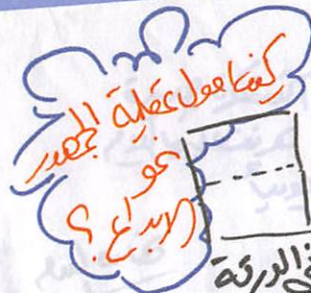 كيف نحول عقلية الجمهور
نحو
الإبداع؟
الورقة